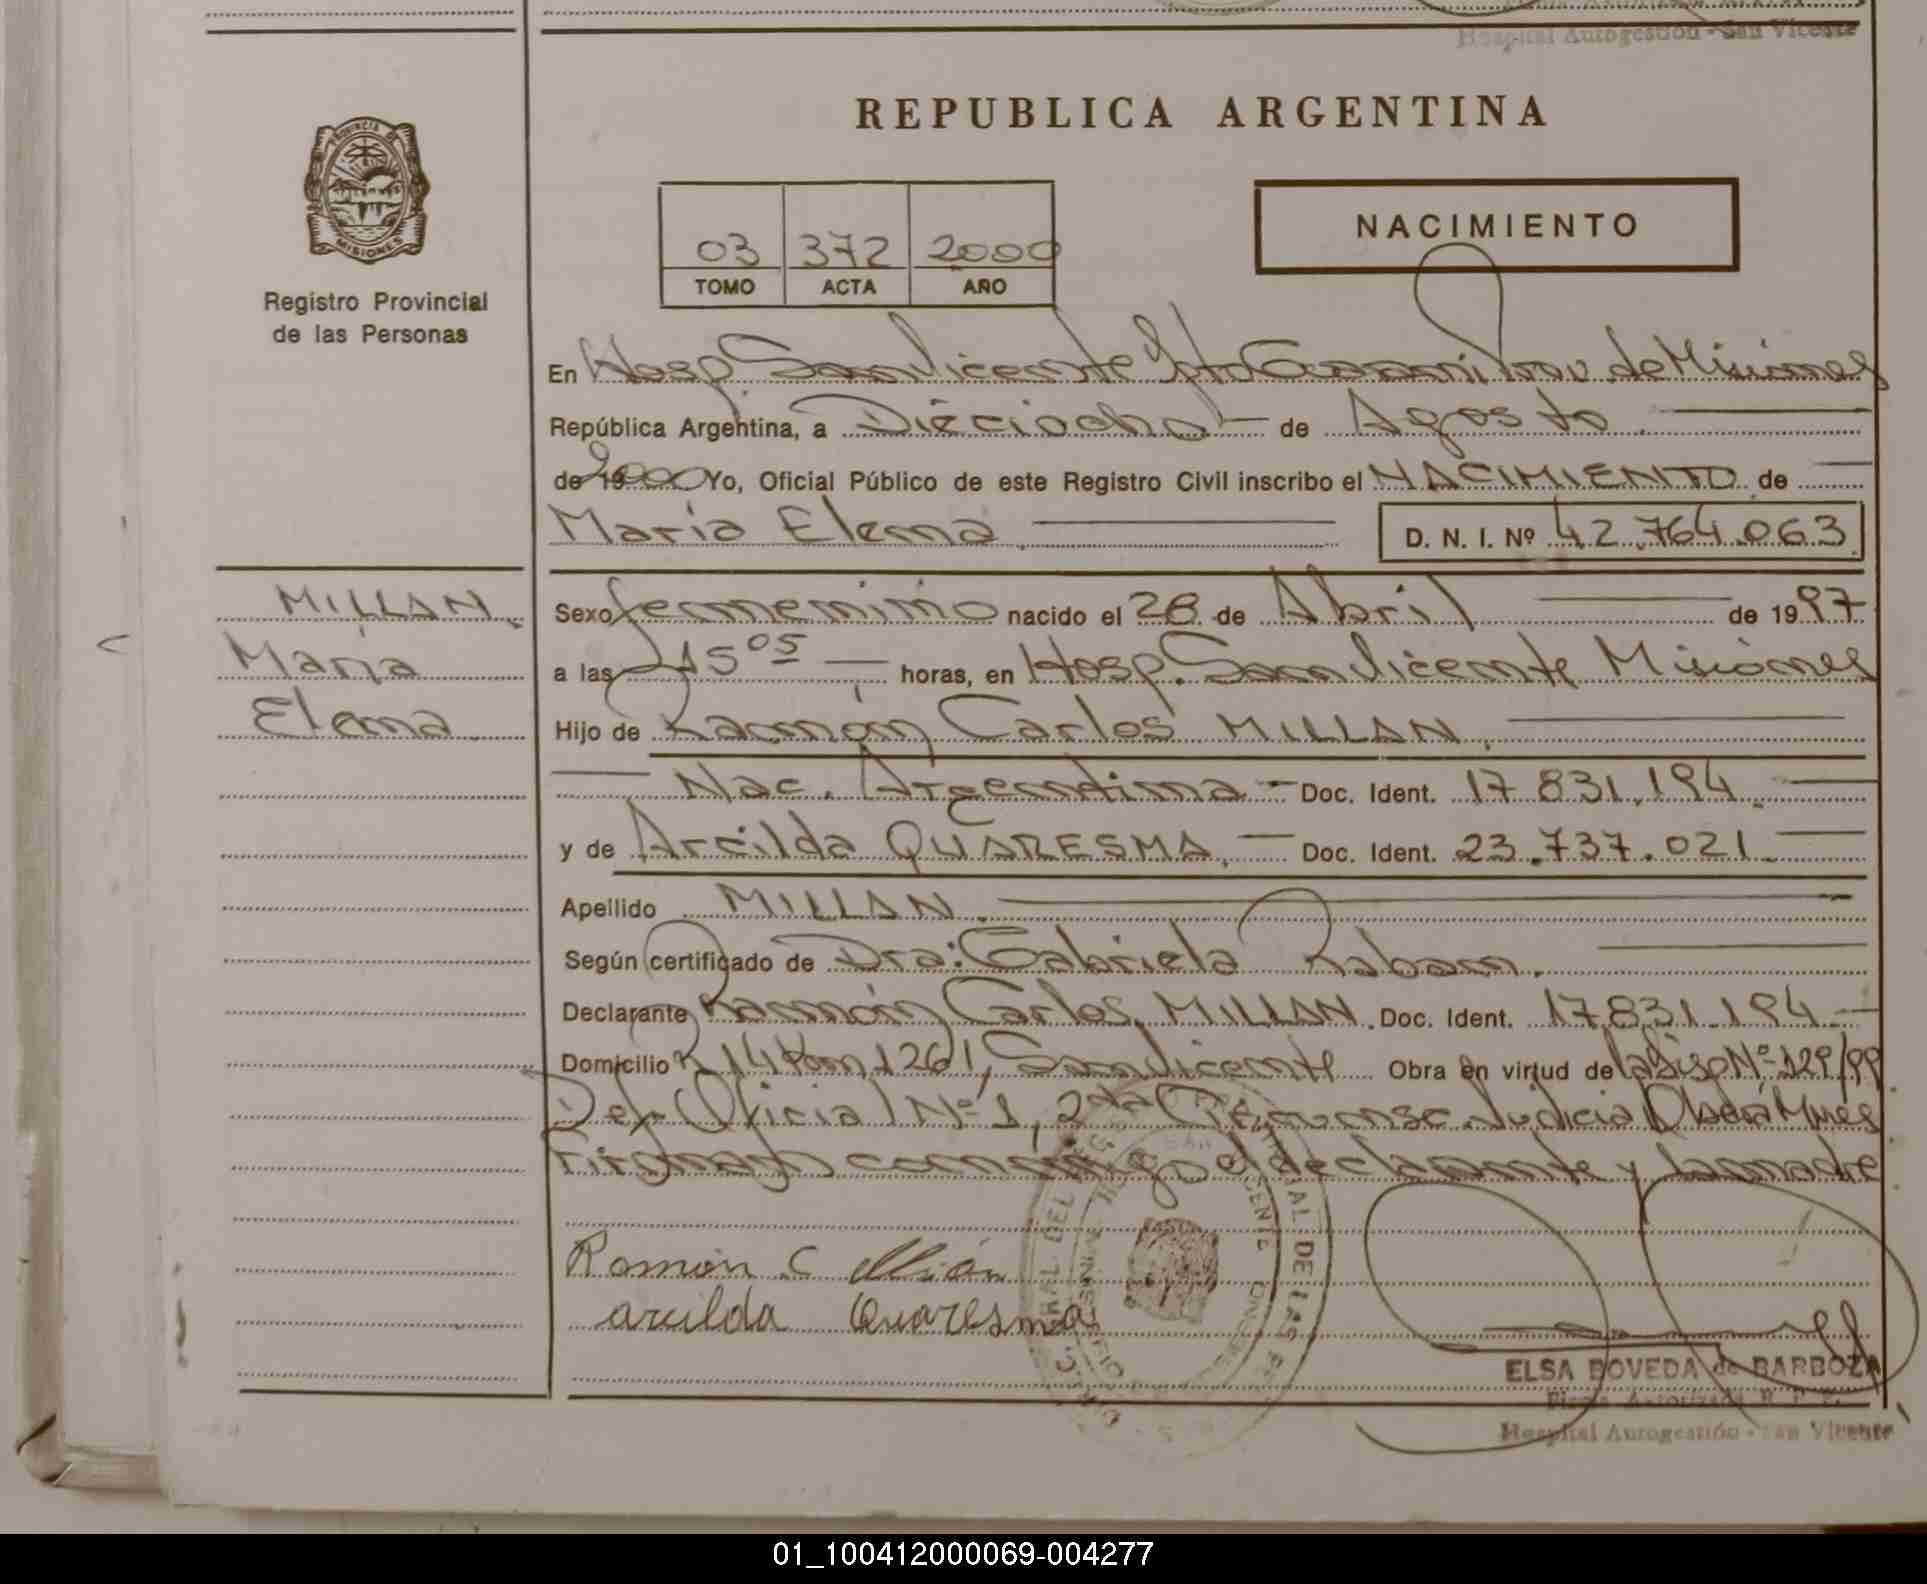 Hospital Autogestión - San Vicente
REPUBLICA ARGENTINA
PROVINCIA DE
MISIONES
Registro Provincial
de las Personas
NACIMIENTO
03 372 2000
TOMO ACTA AÑO
En Hosp. San Vicente Dpto Guaraní Prov. de Misiones
República Argentina, a Dieciocho de Agosto
de 2000 Yo, Oficial Público de este Registro Civil inscribo el NACIMIENTO de
María Elena D. N. I. Nº 42.764.063
MILLAN
María
Elena
Sexo femenino nacido el 28 de Abril de 1997
a las 15 05 horas, en Hosp. San Vicente Misiones
Hijo de Ramón Carlos MILLAN
Nac. Argentina Doc. Ident. 17.831.194
y de Arcilda QUARESMA. Doc. Ident. 23.737.021
Apellido MILLAN.
Según certificado de Dra: Gabriela Raban.
Declarante Ramón Carlos MILLAN. Doc. Ident. 17.831.194
Domicilio R 14 Km 1261, San Vicente Obra en virtud de la Disp Nº 129/99
Def. Oficial Nº 1, 2da Circunsc. Judicial Oberá Mnes
Firmando conmigo el declarante y la madre
Ramón C Millán
arcilda Quaresma
ELSA BOVEDA de BARBOZA
Firma Autorizada R. P. P.
Hospital Autogestión - San Vicente
01_100412000069-004277